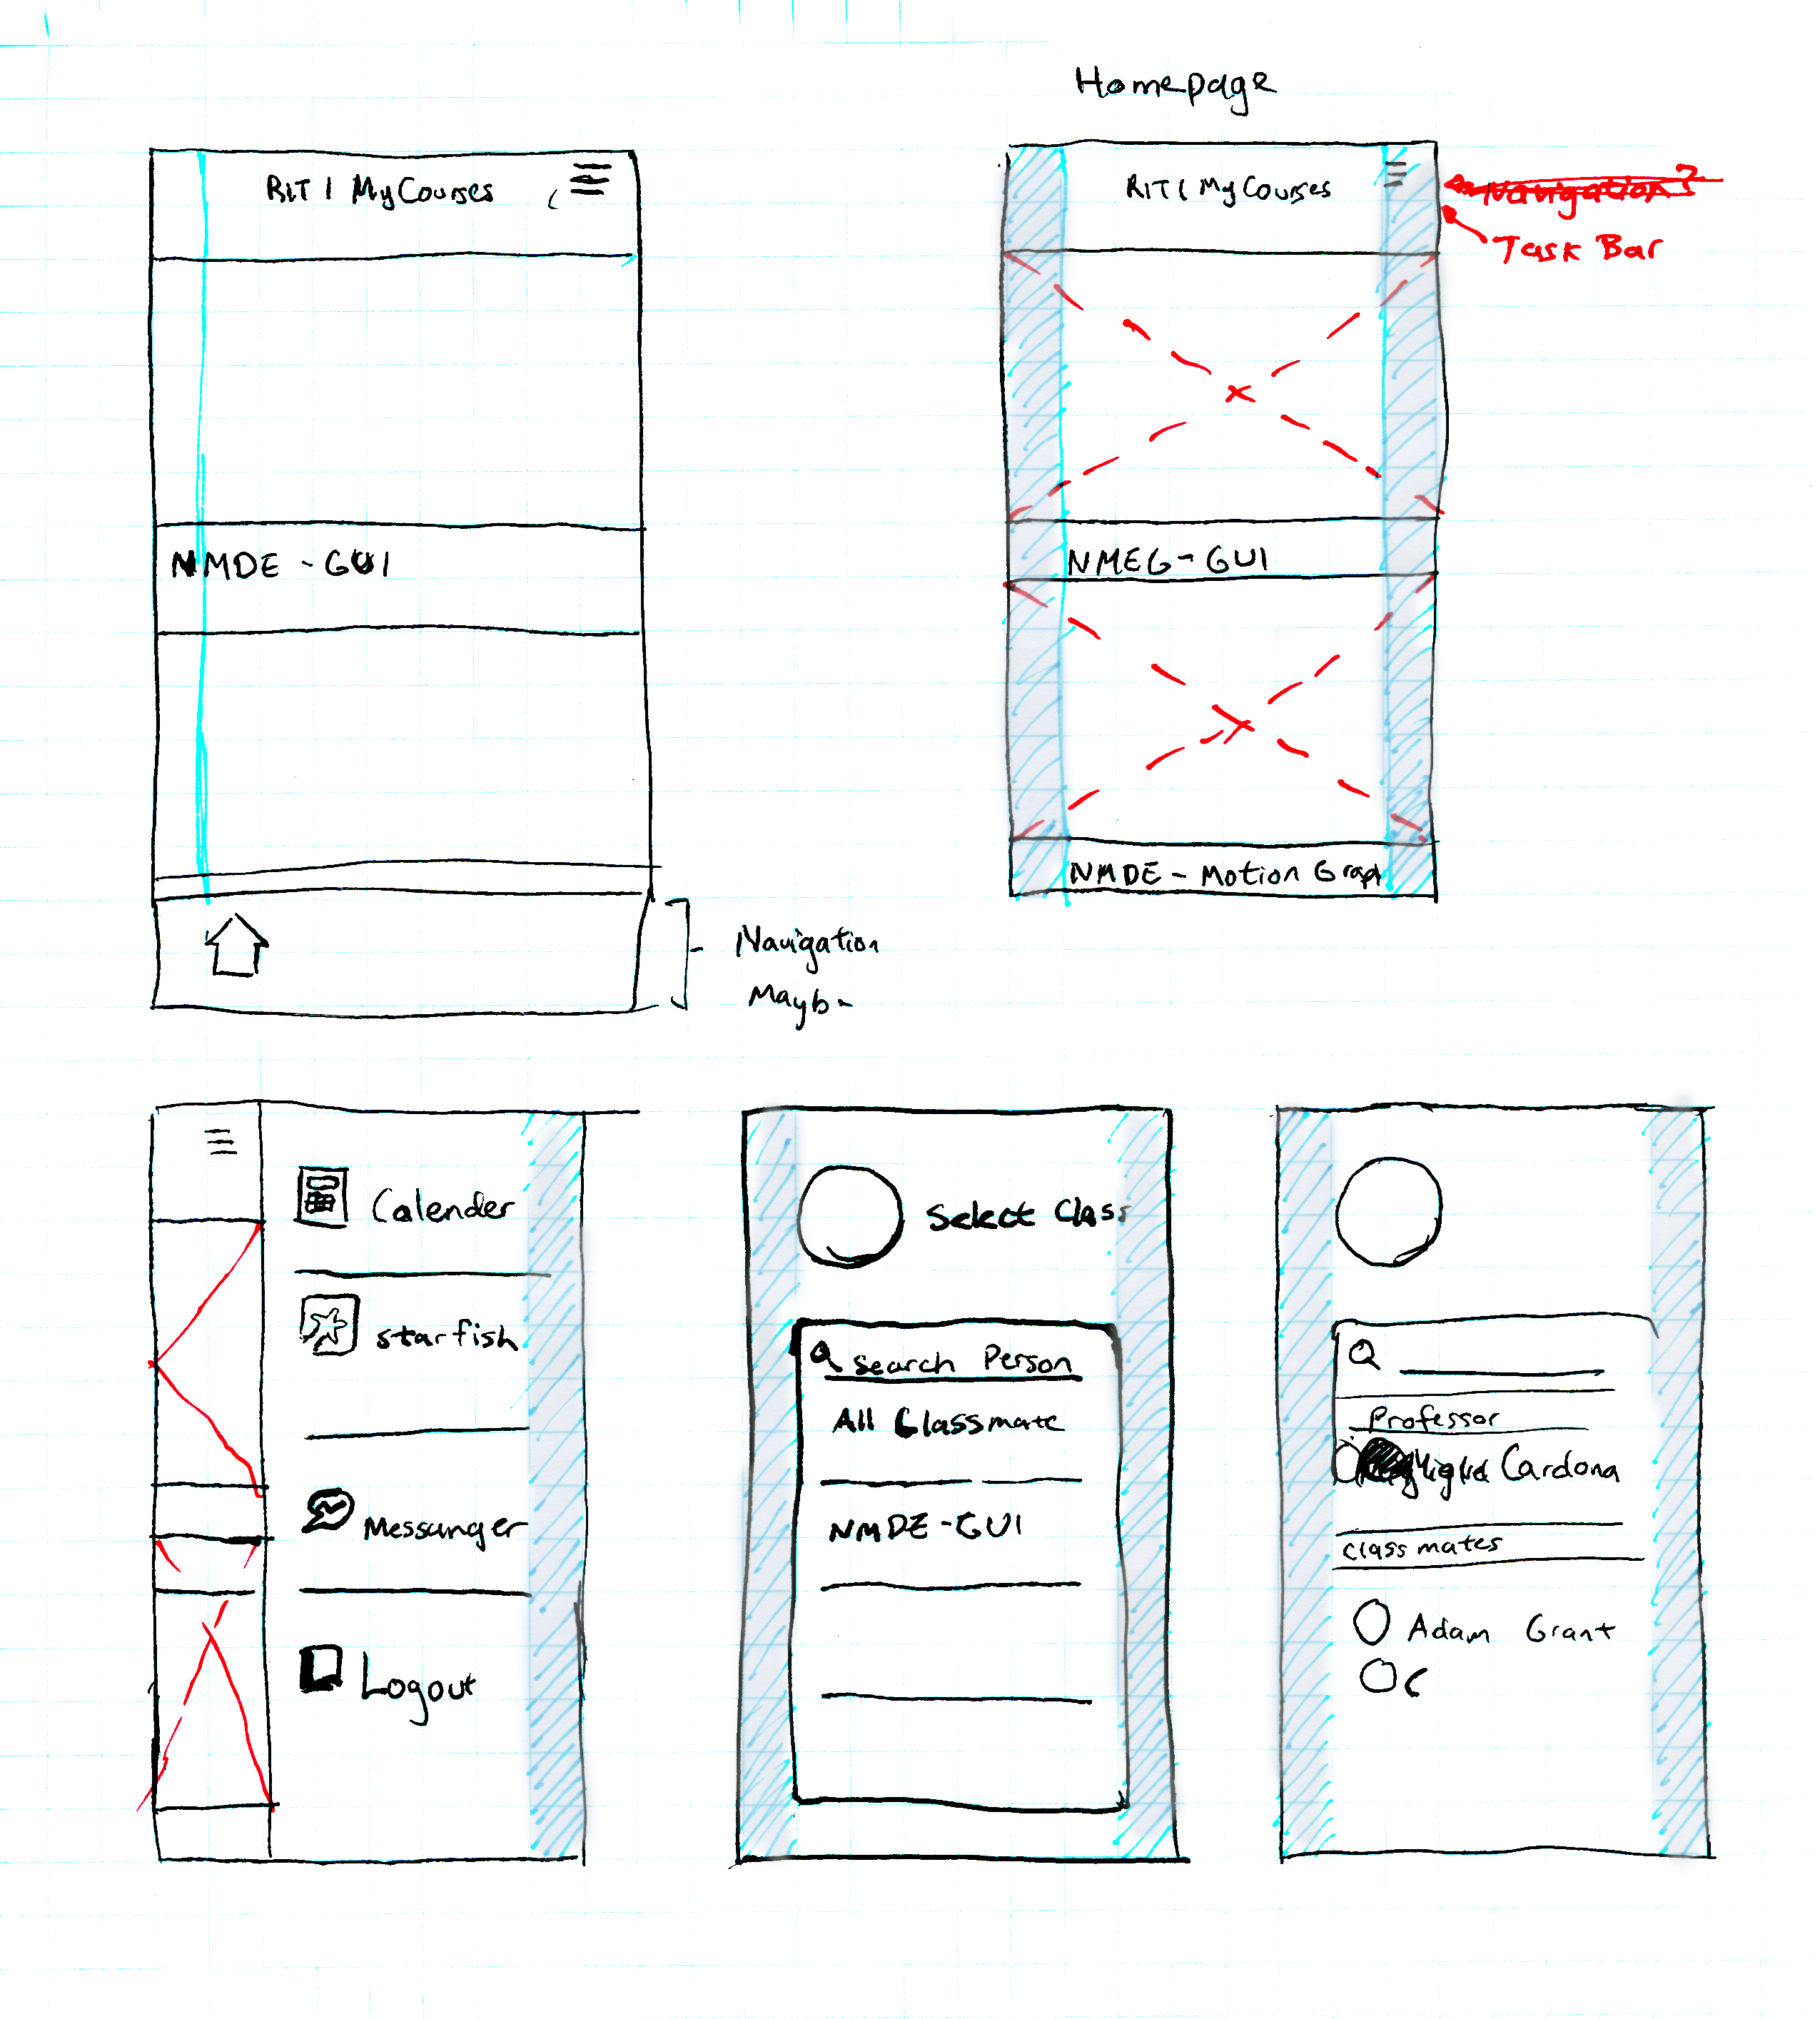 Homepage
RIT | MyCourses
NMDE - GUI
Navigation
Mayb
RIT | MyCourses
Navigation?
Task Bar
NMEG - GUI
NMDE - Motion Graph
Calender
starfish
Messanger
Logout
Select Class
Search Person
All Classmate
NMDE - GUI
Professor
Cardona
Classmates
Adam Grant
C